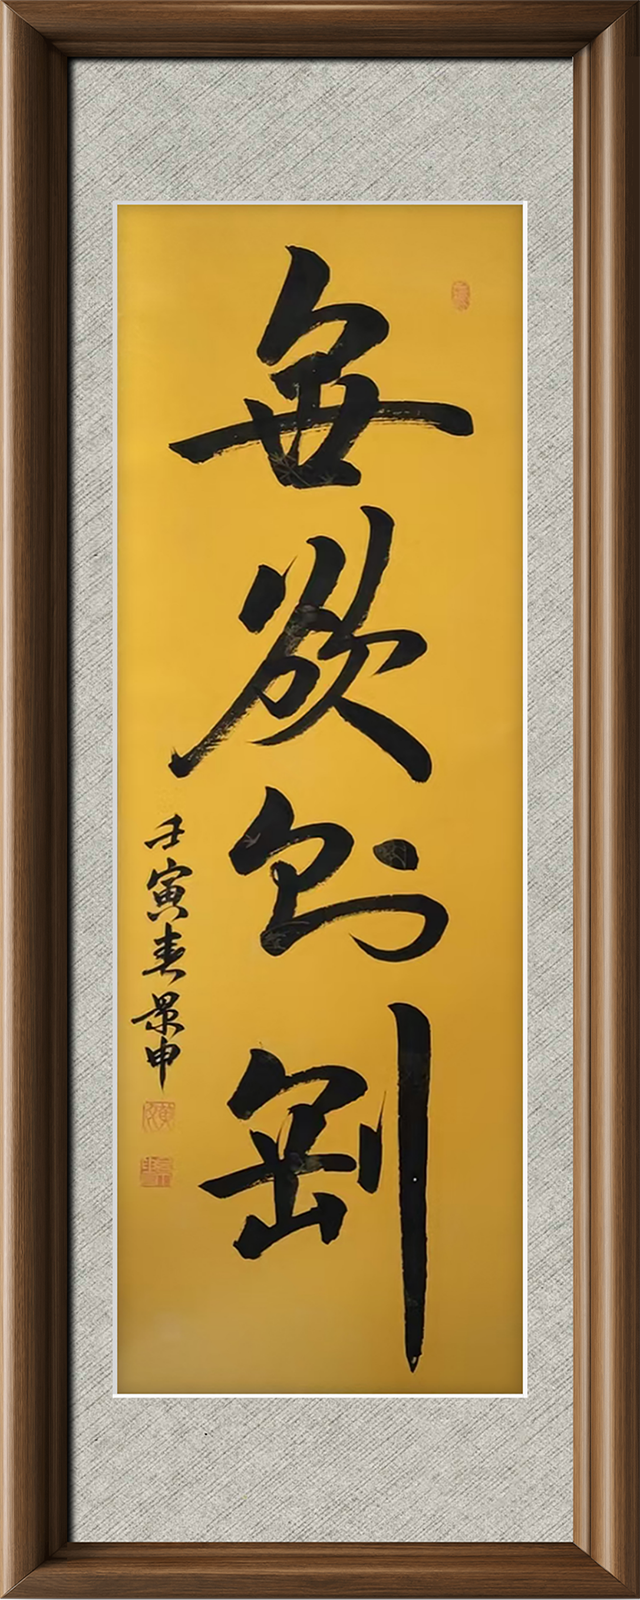 無欲則剛
壬寅春景申